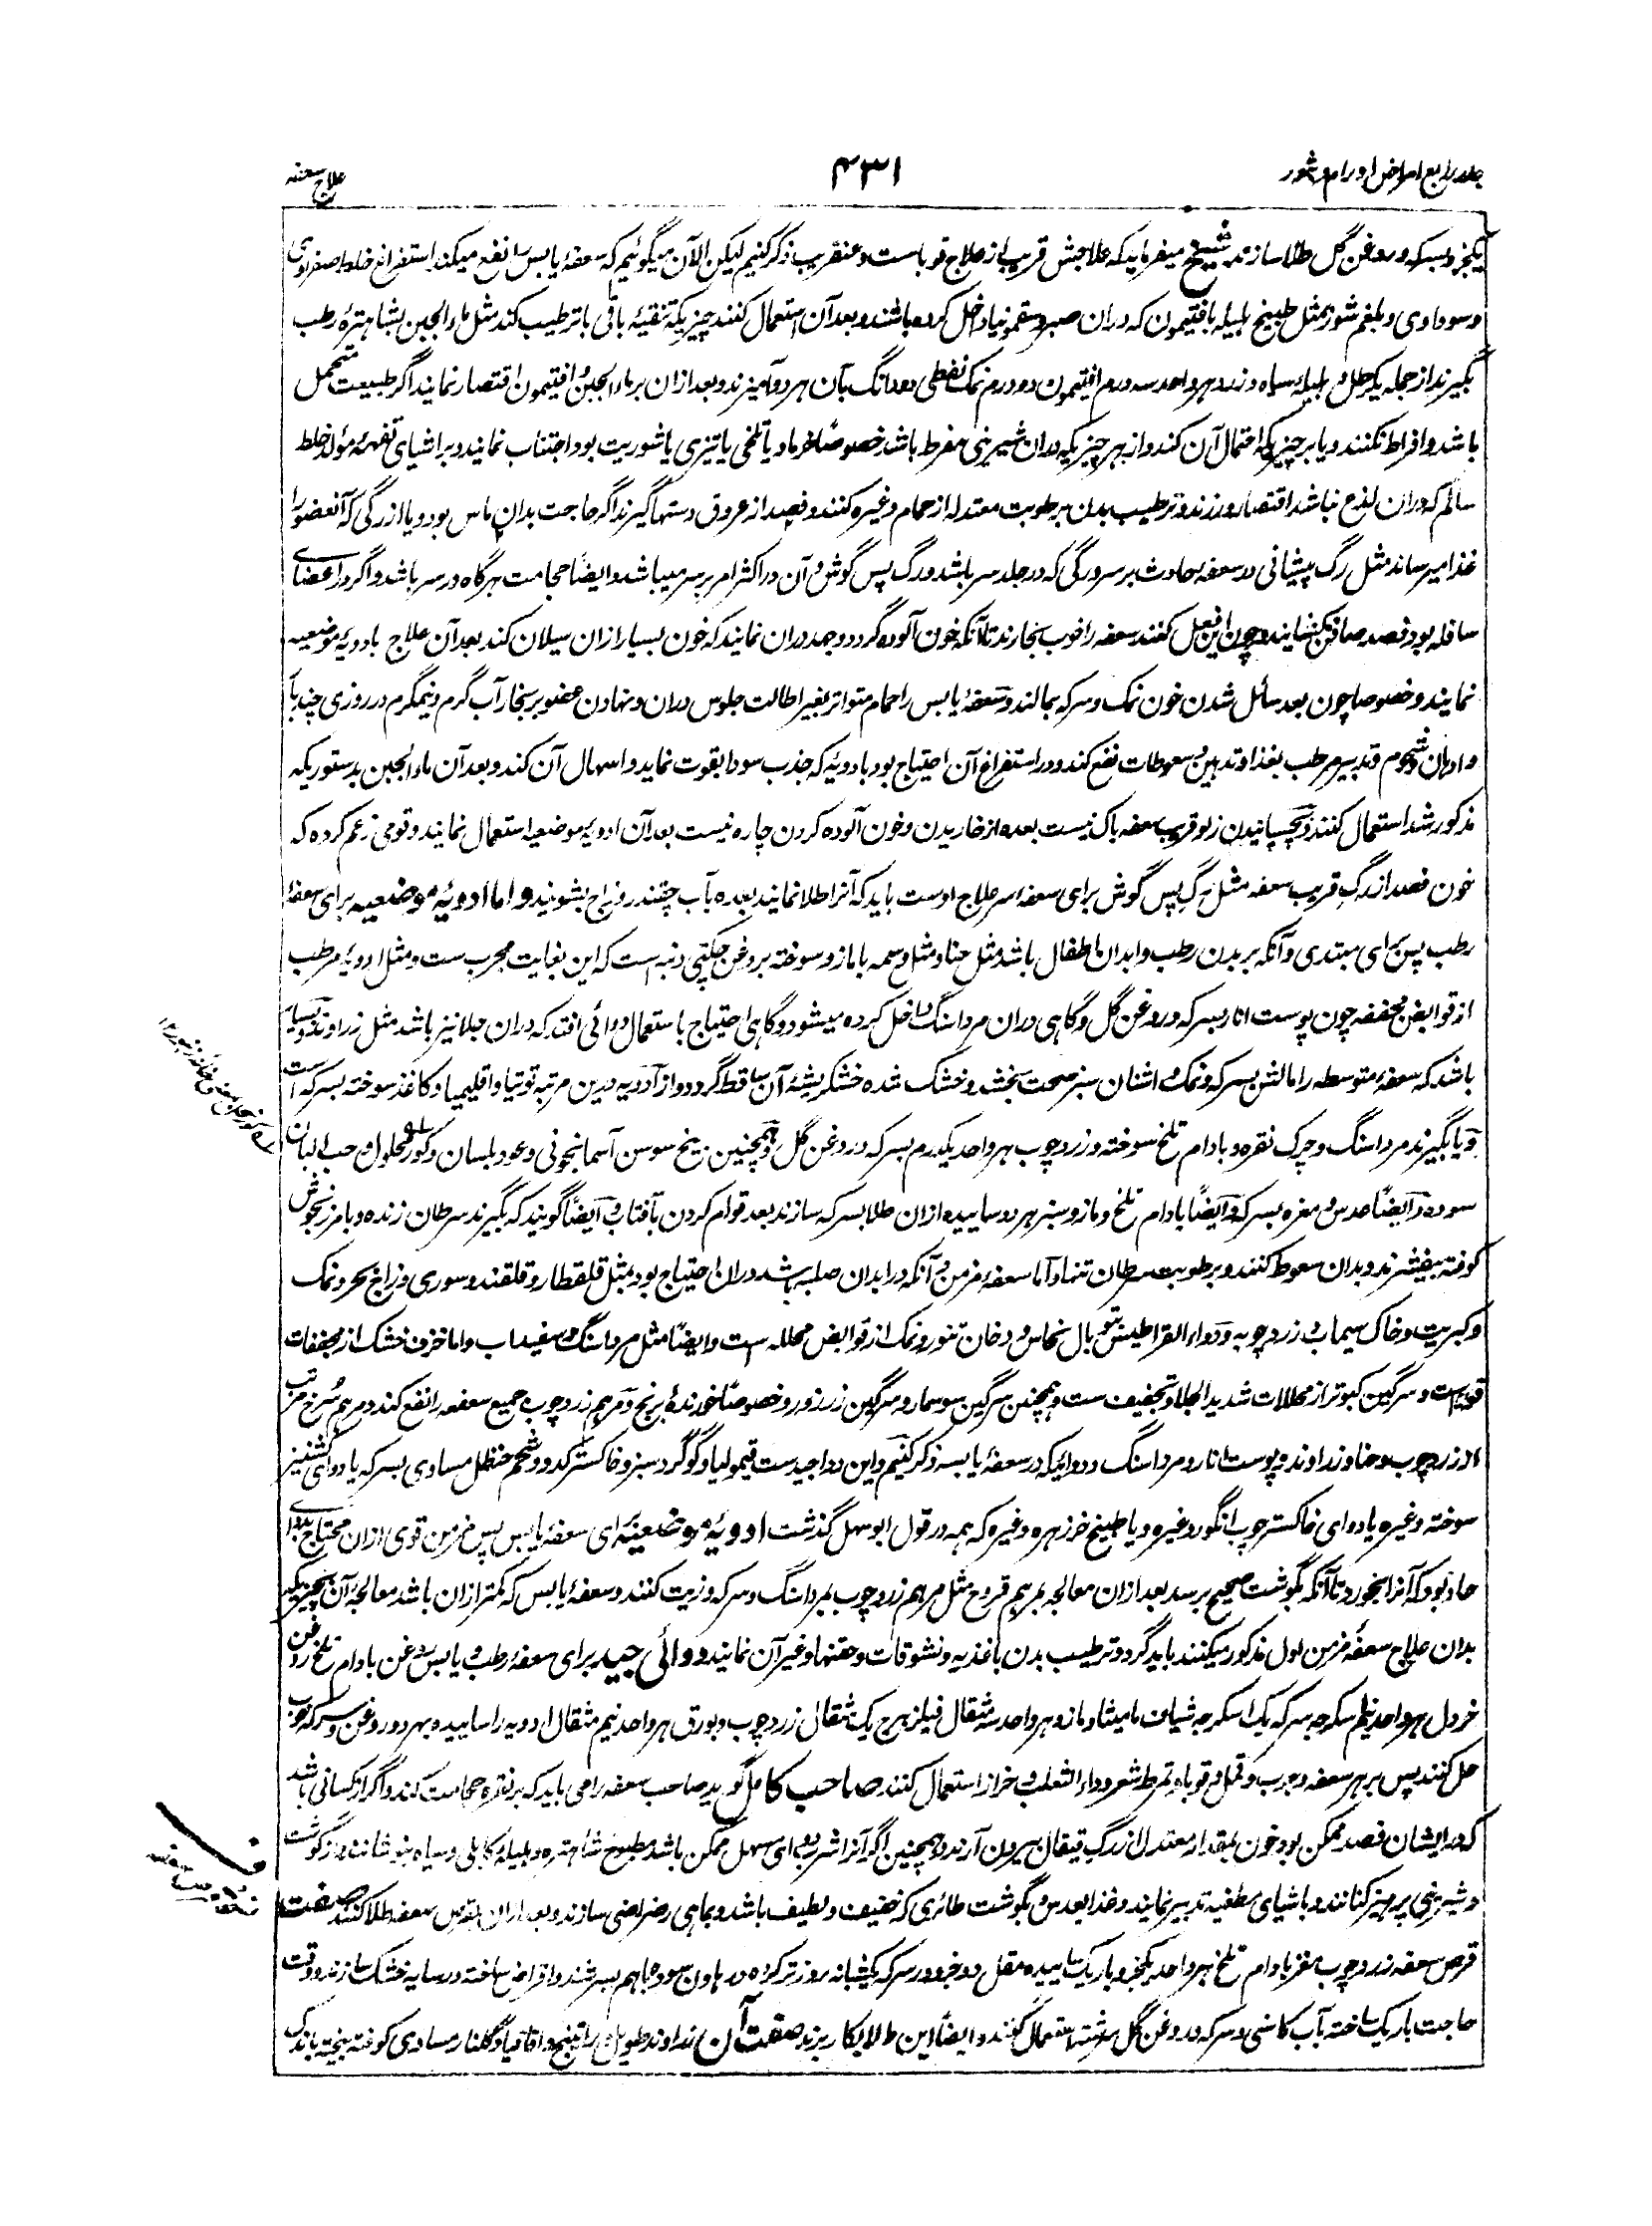 جلد رابع امراض اورام و بثور
۴۳۱
علاج سعفه
یکجزو بسرکه و روغن گل طلا سازند شیخ میفرماید که علاجش قریب از علاج قوباست و عنقریب ذکر کنیم لیکن الآن میگوئیم که سعفهٔ یابس را نفع میکند استفراغ خلط صفراوی
و سوداوی و بلغم شور بمثل طبیخ هلیله با فتیمون که دران صبر و سقمونیا داخل کرده باشند و بعد آن استعمال کنند چیزیکه تنقیهٔ باقی با ترطیب کند مثل ماء الجبن بشاهترهٔ رطب
بگیرند از جمله یکرطل و هلیلهٔ سیاه و زرد هر واحد سه درم افتیمون دو درم نمک نفطی دو دانگ بآن هر دو آمیزند و بعد ازان بر ماء الجبن و افتیمون اقتصار نمایند اگر طبیعت متحمل
باشد و افراط نکنند و یا بر چیزیکه احتمال آن کند و از هر چیزیکه دران شیرینی مفرط باشد خصوصاً خرما و یا تلخی یا تیزی یا شوریت بود اجتناب نمایند و بر اشیای تفهه مولد خلط
سالم که دران لذع نباشد اقتصار ورزند و ترطیب بدن برطوبت معتدله از حمام وغیره کنند و فصد از عروق دستها گیرند اگر حاجت بدان ماس بود و یا از رگی که آنعضو را
غذا میرساند مثل رگ پیشانی در سعفه حادث بر سر و رگی که در جلد سر باشد و رگ پس گوش و آن در اکثر امر بر سر میباشد و ایضاً حجامت هرگاه در سر باشد و اگر در اعضای
سافله بود فصد صافن بکشایند و چون این فعل کنند سعفه را خوب بخارند تا آنکه خون آلوده گردد و جهد دران نمایند که خون بسیار ازان سیلان کند بعد آن علاج بادویهٔ موضعیه
نمایند و خصوصا چون بعد سائل شدن خون نمک و سرکه بمالند و سعفهٔ یابس را حمام متواتر بغیر اطالت جلوس دران و نهادن عضو بر بخار آب گرم و نیمگرم در روزی چند بار
و ادهان و شحوم و تدبیر مرطب بغذا و تدهین و سعوطات نفع کند و در استفراغ آن احتیاج بود بادویه که جذب سودا بقوت نماید و اسهال آن کند و بعد آن ماء الجبن بدستوریکه
مذکور شد استعمال کنند و بچسپانیدن زلو قریب سعفه باک نیست بعده از خاریدن و خون آلوده کردن چاره نیست بعد آن ادویهٔ موضعیه استعمال نمایند و قومی زعم کرده که
خون فصد از رگ قریب سعفه مثل رگ پس گوش برای سعفه سر علاج اوست باید که آنرا طلا نمایند بعده بآب چقندر و زاج بشویند و اما ادویهٔ موضعیه برای سعفهٔ
رطب پس برای مبتدی و آنکه بر بدن رطب و ابدان اطفال باشد مثل حنا و مثل وسمه با مازو سوخته بروغن چکتی دنبه است که این بغایت مجرب ست و مثل ادویه مرطب
از قوابض مجففه چون پوست انار بسرکه و روغن گل و گاهی دران مرداسنگ داخل کرده میشود و گاهی احتیاج باستعمال دوائی افتد که دران جلا نیز باشد مثل زراوند و بسیار
باشد که سعفهٔ متوسطه را مالش بسرکه و نمک و اشنان سبز صحت بخشد و خشک شده خشکریشهٔ آن ساقط گردد و از ادویه درین مرتبه توتیا و اقلیمیا و کاغذ سوخته بسرکه است
و یا بگیرند مرداسنگ و چرک نقره و بادام تلخ سوخته و زردچوب هر واحد یکدرم بسرکه و روغن گل و همچنین بیخ سوسن آسمانجونی و عود بلسان و کور محلول و حب البان
سوده و ایضاً عدس و مغره بسرکه و ایضاً بادام تلخ و مازو سبز هر دو ساییده ازان طلا بسرکه سازند بعد قوام کردن بآفتاب و ایضاً گویند که بگیرند سرطان زنده و بامرزنجوش
کوفته بیفشرند و بدان سعوط کنند و برطوبت سرطان تنها و اما سعفهٔ مزمن و آنکه در ابدان صلبه باشد دران احتیاج بود بمثل قلقطار و قلقند و سوری و زاج بحر و نمک
و کبریت و خاک سیماب و زردچوبه و دواء القراطیس و توبال نحاس و دخان تنور و نمک از قوابض محلله است و ایضاً مثل مرداسنگ و سفیداب و اما خزف خشک از مجففات
قویه است و سرگین کبوتر از محللات شدید الجلا و تجفیف ست و همچنین سرگین سوسمار و سرگین زرزور و خصوصاً خورندهٔ برنج و مرهم زردچوب جمیع سعفه را نفع کند و مرهم سرخ مرتب
از زردچوب و حنا و زراوند و پوست انار و مرداسنگ و دوائیکه در سعفهٔ یابسه ذکر کنیم و این دوا جیدست قیمولیا و گوگرد سبز و خاکستر کدو و شحم حنظل مساوی بسرکه یا دوای کشنیز
سوخته وغیره یا دوای خاکستر چوب انگور وغیره و یا طبیخ خرزهره وغیره که همه در قول ابو سهل گذشت ادویهٔ موضعیه برای سعفهٔ یابس پس مزمن قوی ازان محتاج بدوای
حاد بود که آنرا بخورد تا آنکه بگوشت صحیح برسد بعد ازان معالجه بمرهم قروح مثل مرهم زردچوب بمرداسنگ و سرکه و زیت کنند و سعفهٔ یابس که کمتر ازان باشد معالجهٔ آن بچیزیکه
بدان علاج سعفهٔ مزمن اول مذکور میکنند باید کرد و ترطیب بدن باغذیه و نشوقات و حقنها و غیر آن نمایند دوائی جید برای سعفهٔ رطب و یابس روغن بادام تلخ روغن
خردل هر واحد نیم سکرجه سرکه یک اسکرجه شیاف مامیثا و مازو هر واحد سه مثقال فیلزهرج یک مثقال زردچوب و بورق هر واحد نیم مثقال ادویه را ساییده بهر دو روغن و سرکه خوب
حل کنند پس بر هر سعفه و جرب و قمل و قوبا و تمرط شعر و داء الثعلب و خراز استعمال کنند صاحب کامل گوید صاحب سعفه را می باید که بر نقره حجامت کند و اگر از کسانی باشد
که در ایشان فصد ممکن بود خون بمقدار معتدل از رگ قیفال بیرون آرند و همچنین اگر آنرا شرب دوای مسهل ممکن باشد مطبوخ شاهتره و هلیلهٔ کابلی و سیاه بنوشانند و از گوشت
و شیرینی پرهیز کنانند و باشیای مطفیه تدبیر نمایند و غذا بعدس و بگوشت طائری که خفیف و لطیف باشد و بماهی رضراضی سازند و بعد ازان بقرص سعفه طلا کنند صفت
قرص سعفه زردچوب مغز بادام تلخ هر واحد یکجزو باریک ساییده مقل دو جزو در سرکه یکشبانه روز تر کرده در هاون سوده باهم بسرشند و اقراض ساخته در سایه خشک سازند و وقت
حاجت باریک ساخته بآب کاسنی و سرکه و روغن گل سرشته استعمال کنند و ایضاً این طلا بکار برند صفت آن زراوند طویل و راتینج و اقاقیا و گلنار مساوی کوفته بیخته باندک